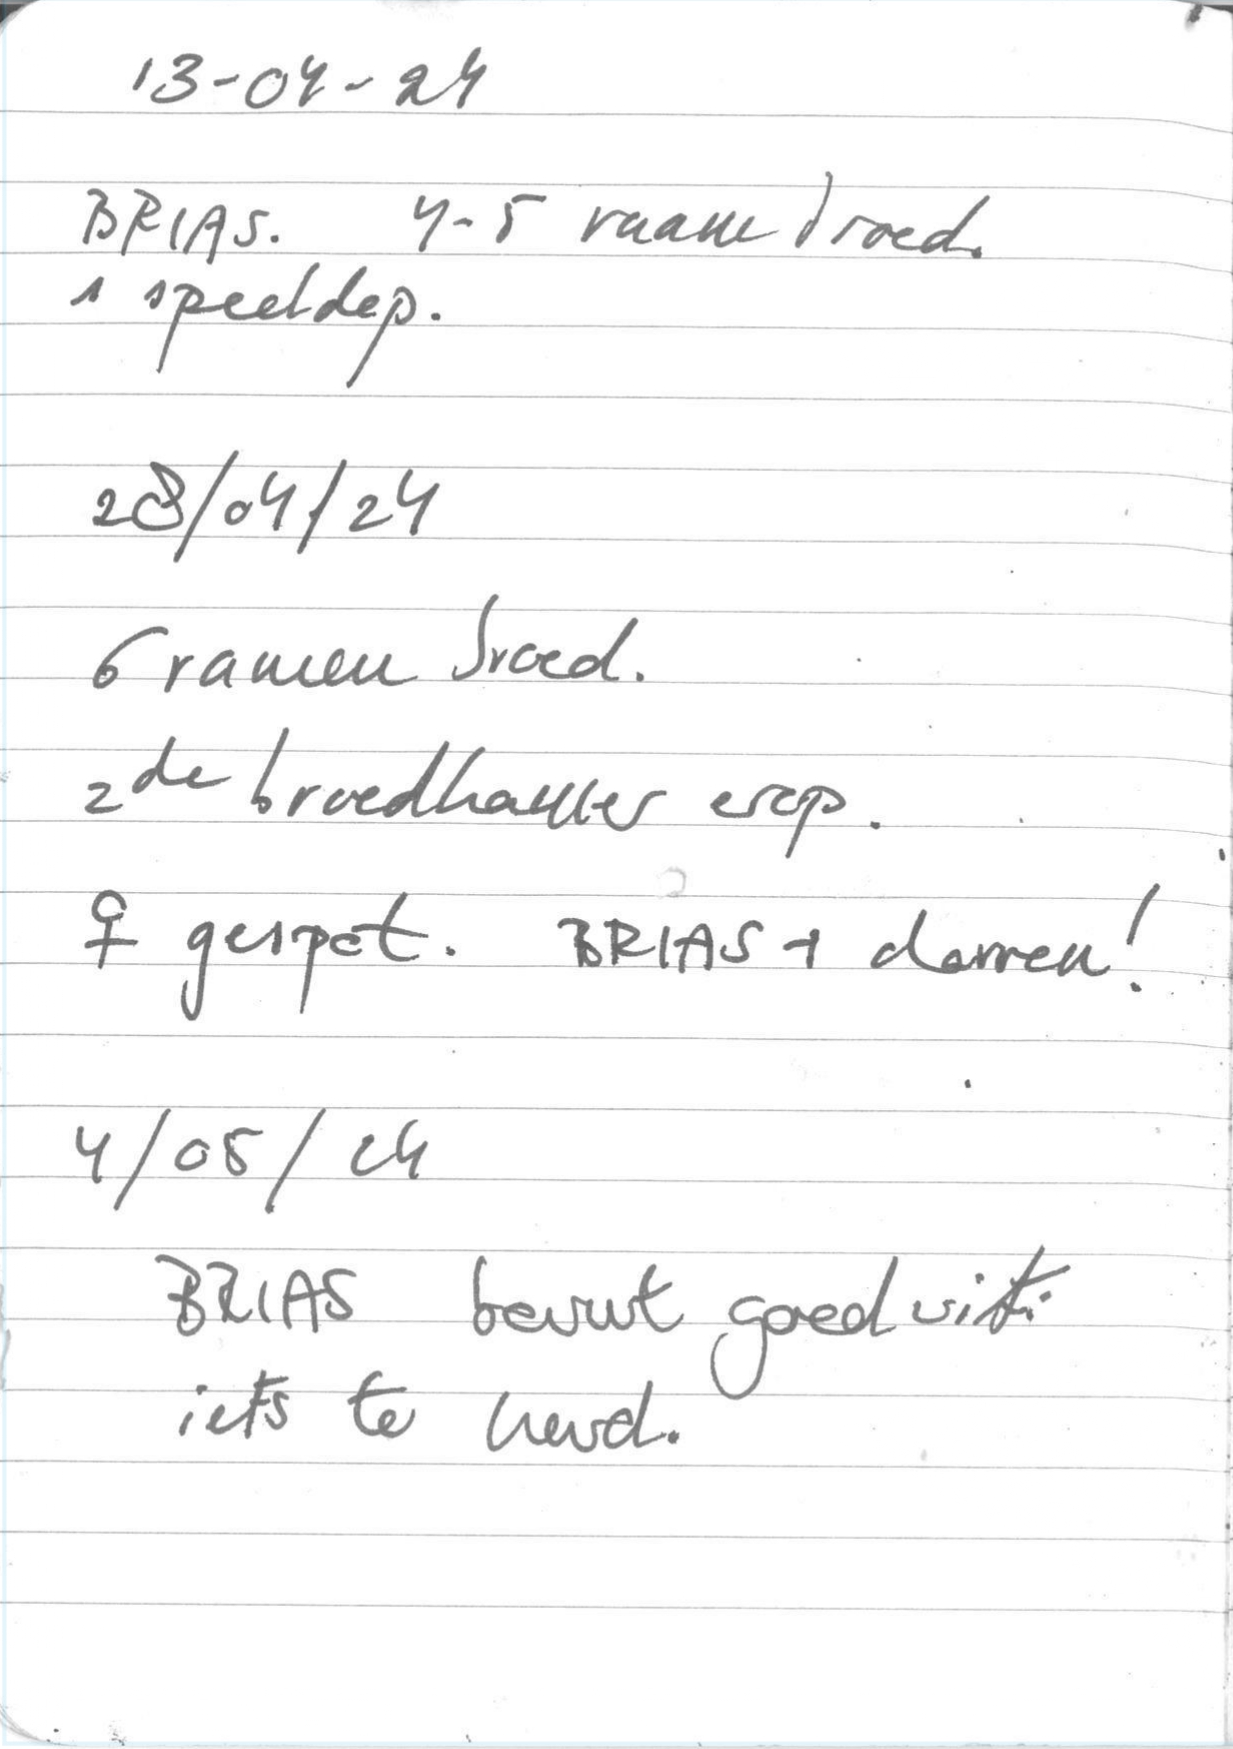 13-04-24
BRIAS. 4-5 raam broed.
1 speeldop.
28/04/24
6 ramen broed.
2de broedkamer erop.
♀ gespot. BRIAS + darren!
4/05/24
BRIAS bouwt goed uit:
iets te